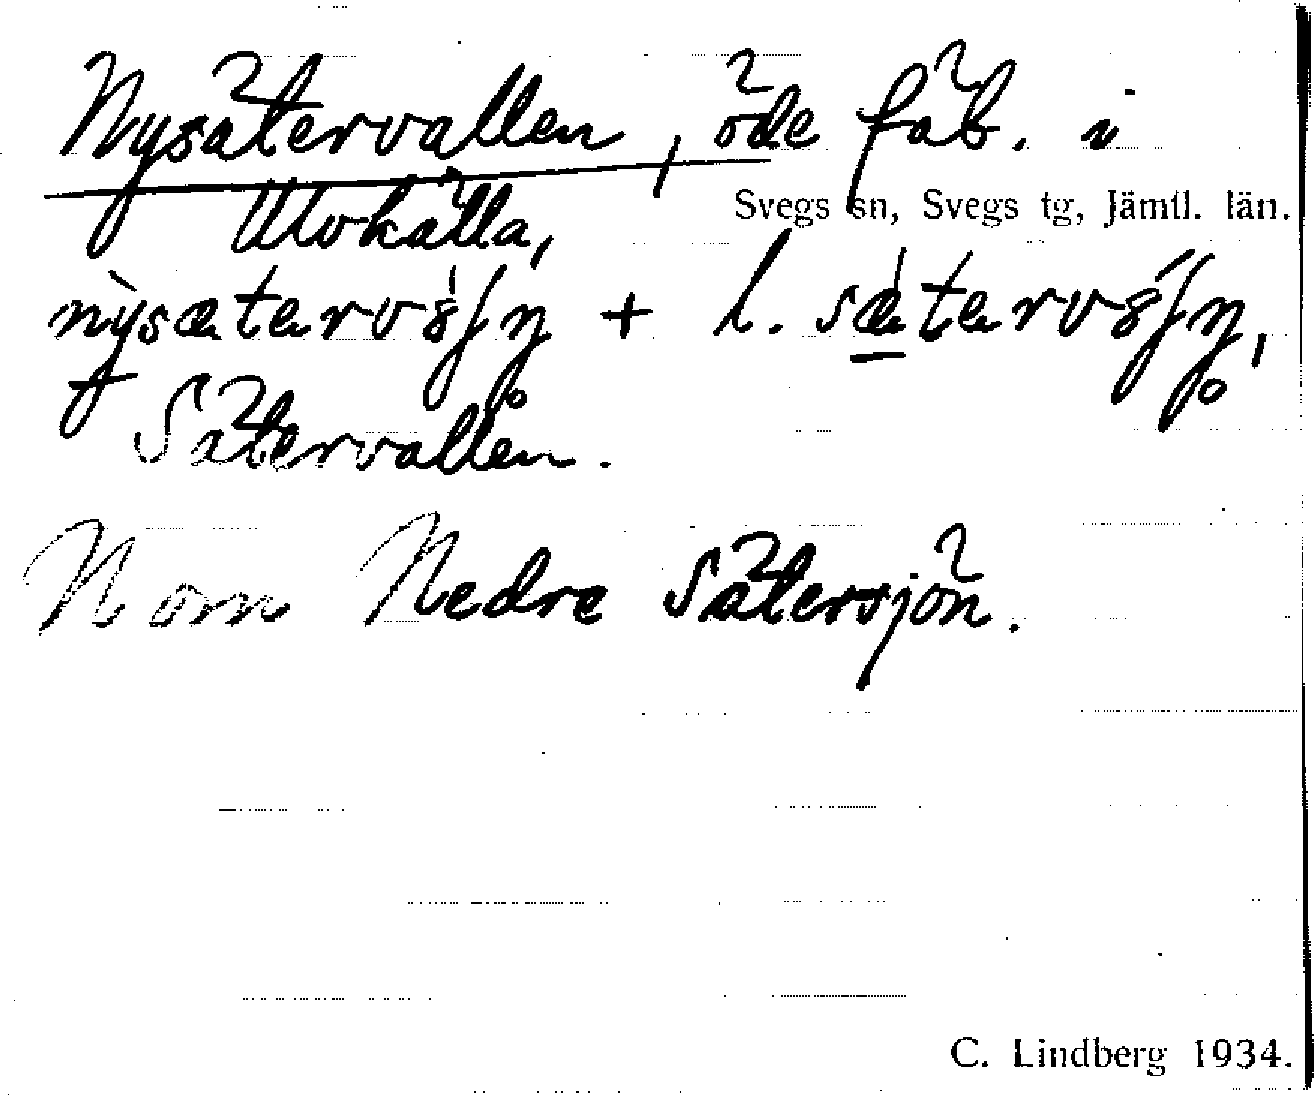 Nysätervallen, öde fäb. i
Svegs sn, Svegs tg, Jämtl. län.
Ulvkälla,
+ l.
Sätervallen.
N om Nedre Sätersjön.
C. Lindberg 1934.